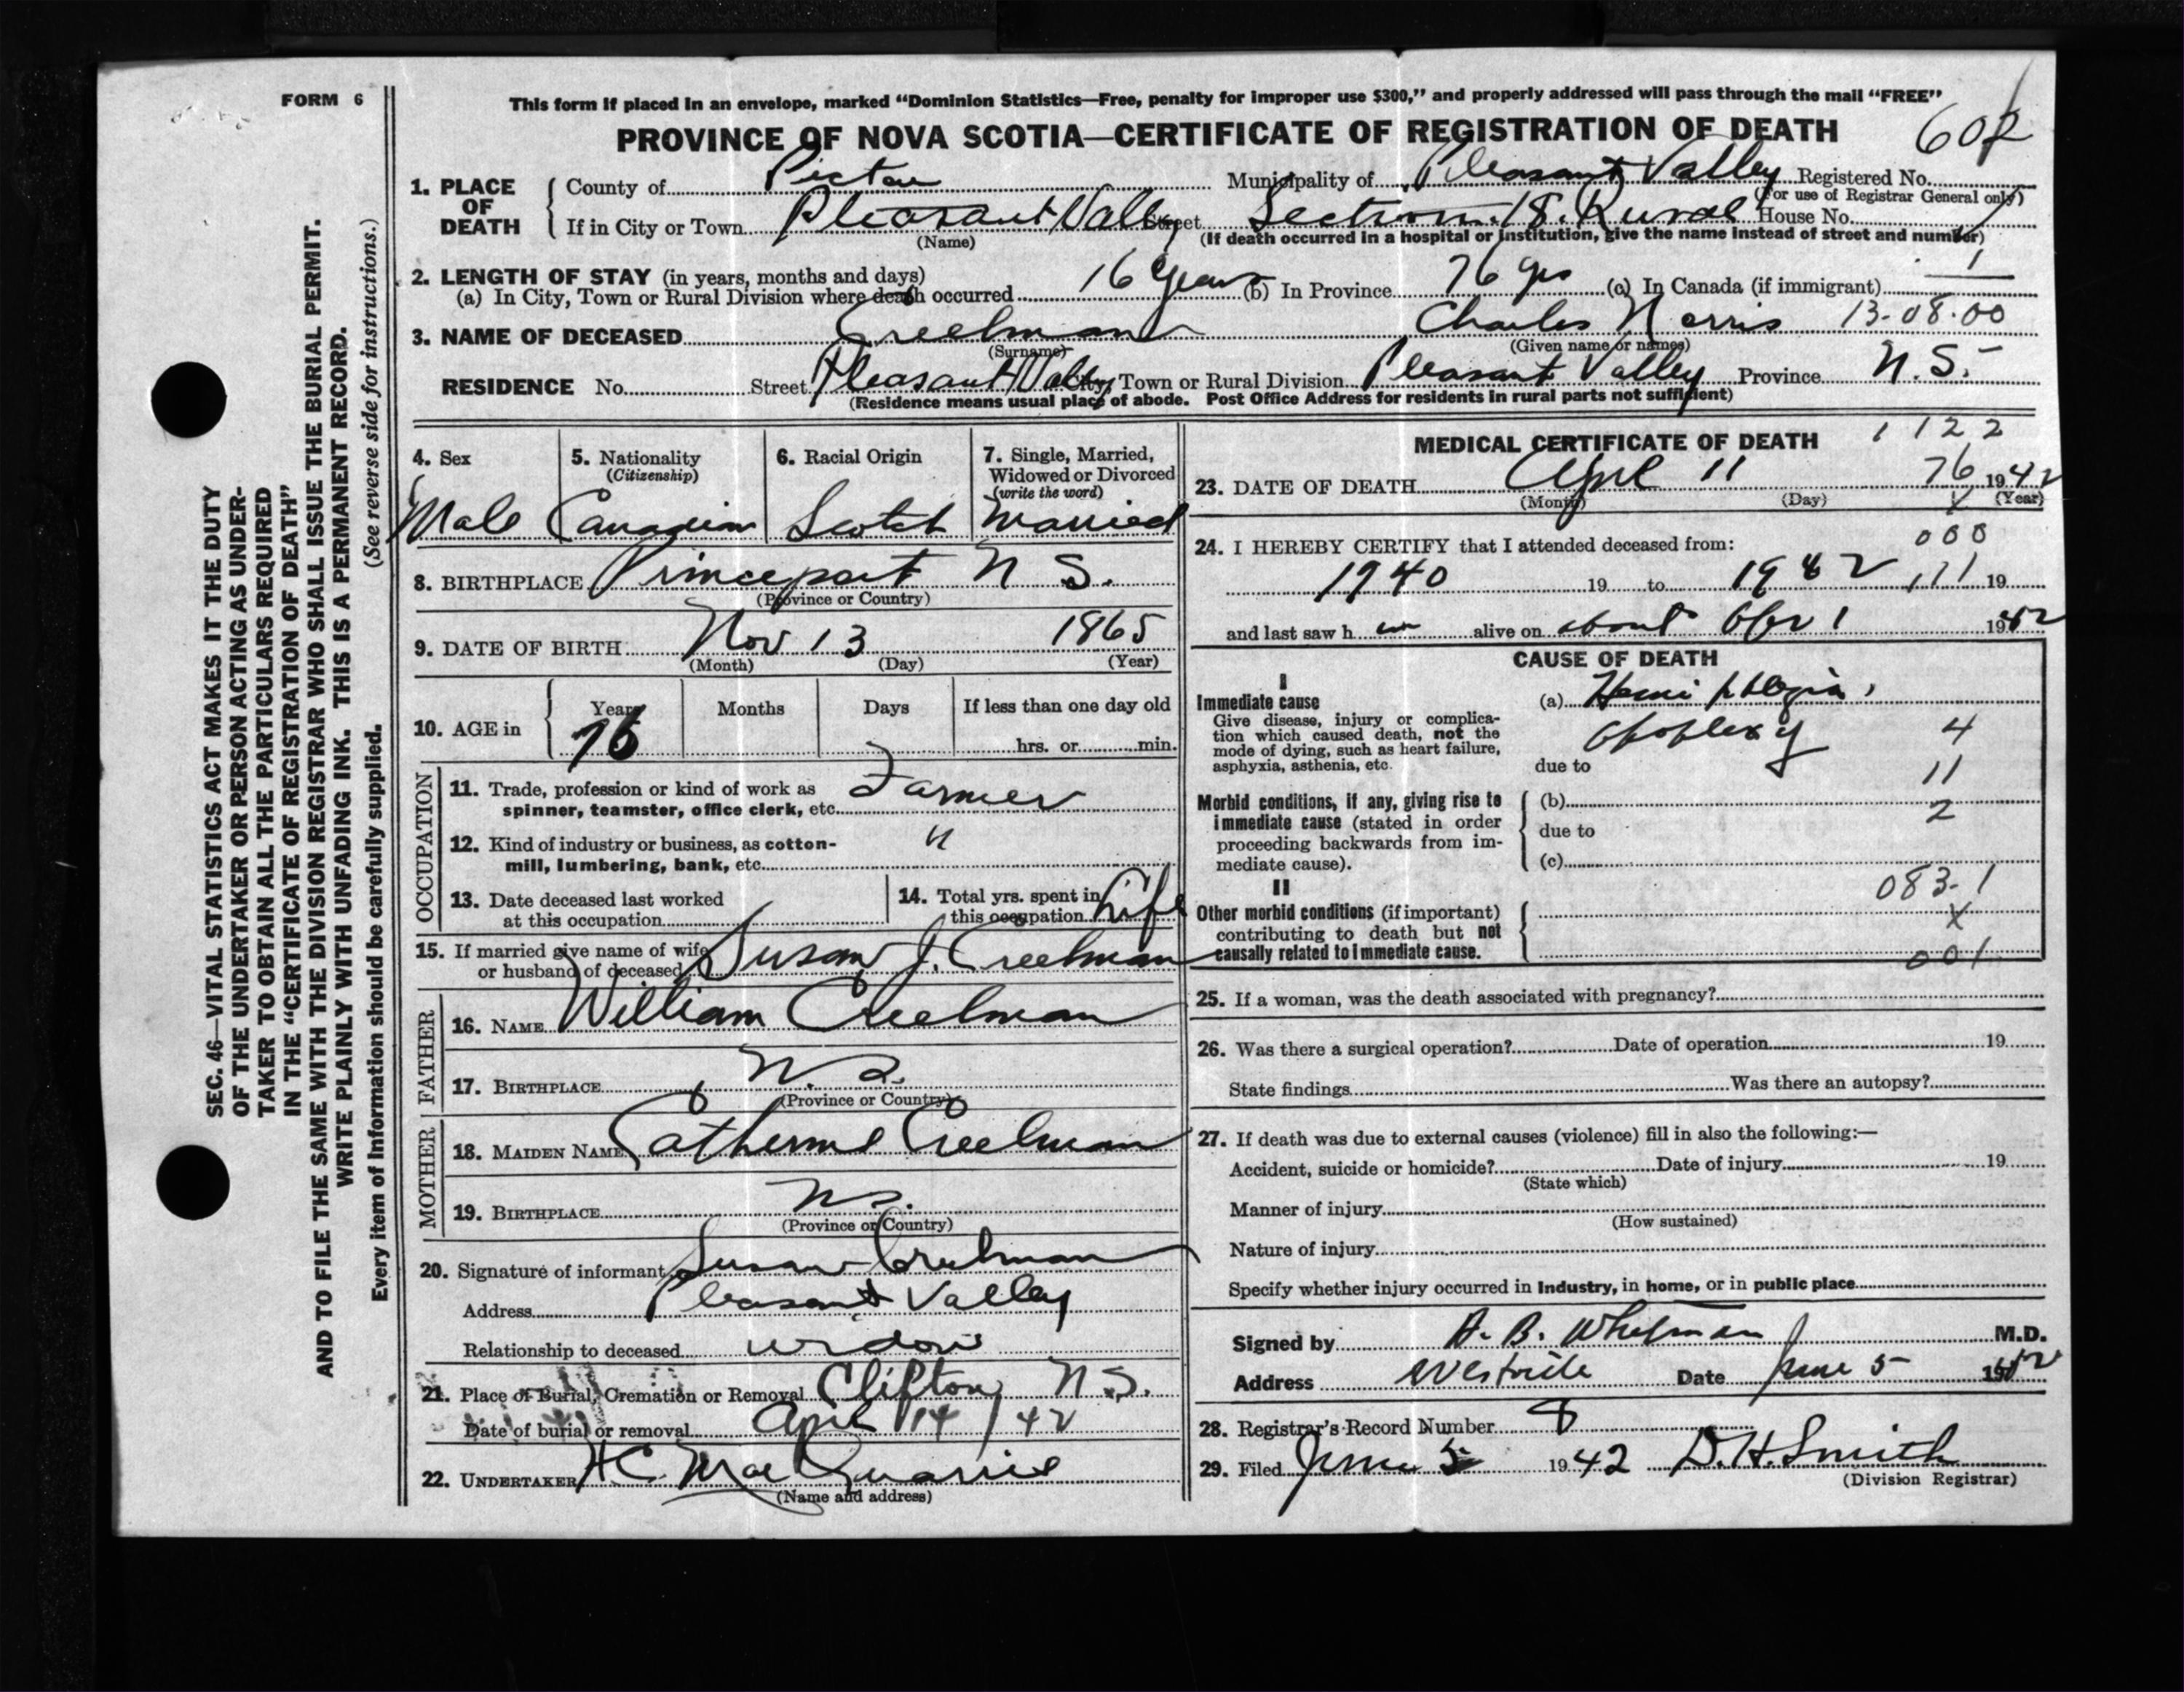 FORM 6
This form if placed in an envelope, marked “Dominion Statistics—Free, penalty for improper use $300,” and properly addressed will pass through the mail “FREE”
PROVINCE OF NOVA SCOTIA—CERTIFICATE OF REGISTRATION OF DEATH
1. PLACE OF DEATH County of Pictou Municipality of Pleasant Valley Registered No.
(For use of Registrar General only)
If in City or Town Pleasant Valley Street Section 18. Rural House No.
(Name) (If death occurred in a hospital or institution, give the name instead of street and number)
2. LENGTH OF STAY (in years, months and days)
(a) In City, Town or Rural Division where death occurred 16 years (b) In Province 76 yrs (c) In Canada (if immigrant)
3. NAME OF DECEASED Creelman Charles Norris 13-08-00
(Surname) (Given name or names)
RESIDENCE No. Street Pleasant Valley City, Town or Rural Division Pleasant Valley Province N.S.
(Residence means usual place of abode. Post Office Address for residents in rural parts not sufficient)
4. Sex 5. Nationality (Citizenship) 6. Racial Origin 7. Single, Married, Widowed or Divorced (write the word)
Male Canadian Scotch Married
8. BIRTHPLACE Princeport N S.
(Province or Country)
9. DATE OF BIRTH Nov 13 1865
(Month) (Day) (Year)
10. AGE in Years Months Days If less than one day old
76 hrs. or min.
OCCUPATION
11. Trade, profession or kind of work as spinner, teamster, office clerk, etc. Farmer
12. Kind of industry or business, as cotton-mill, lumbering, bank, etc. "
13. Date deceased last worked at this occupation
14. Total yrs. spent in this occupation Life
15. If married give name of wife or husband of deceased Susan J. Creelman
FATHER
16. NAME William Creelman
17. BIRTHPLACE N.S.
(Province or Country)
MOTHER
18. MAIDEN NAME Catherine Creelman
19. BIRTHPLACE N.S.
(Province or Country)
20. Signature of informant Susan Creelman
Address Pleasant Valley
Relationship to deceased widow
21. Place of Burial, Cremation or Removal Clifton, N.S.
Date of burial or removal April 14 / 42
22. UNDERTAKER H C. MacQuarrie
(Name and address)
MEDICAL CERTIFICATE OF DEATH 1122
23. DATE OF DEATH April 11 76 1942
(Month) (Day) (Year)
24. I HEREBY CERTIFY that I attended deceased from: 000
1940 19 to 1942 19
and last saw h im alive on about Apr 1 1942
CAUSE OF DEATH
I
Immediate cause
Give disease, injury or complication which caused death, not the mode of dying, such as heart failure, asphyxia, asthenia, etc.
(a) Hemiphlegia,
Apoplexy 4
due to 11
Morbid conditions, if any, giving rise to immediate cause (stated in order proceeding backwards from immediate cause).
(b)
2
due to
(c)
II 083-1
Other morbid conditions (if important) contributing to death but not causally related to immediate cause. X
001
25. If a woman, was the death associated with pregnancy?
26. Was there a surgical operation? Date of operation 19
State findings Was there an autopsy?
27. If death was due to external causes (violence) fill in also the following:—
Accident, suicide or homicide? Date of injury 19
(State which)
Manner of injury
(How sustained)
Nature of injury
Specify whether injury occurred in industry, in home, or in public place
Signed by A. B. Whitman M.D.
Address Westville Date June 5 1942
28. Registrar's Record Number 8
29. Filed June 5 1942 D. H. Smith
(Division Registrar)
SEC. 46—VITAL STATISTICS ACT MAKES IT THE DUTY
OF THE UNDERTAKER OR PERSON ACTING AS UNDER-
TAKER TO OBTAIN ALL THE PARTICULARS REQUIRED
IN THE “CERTIFICATE OF REGISTRATION OF DEATH”
AND TO FILE THE SAME WITH THE DIVISION REGISTRAR WHO SHALL ISSUE THE BURIAL PERMIT.
WRITE PLAINLY WITH UNFADING INK. THIS IS A PERMANENT RECORD.
Every item of information should be carefully supplied. (See reverse side for instructions.)